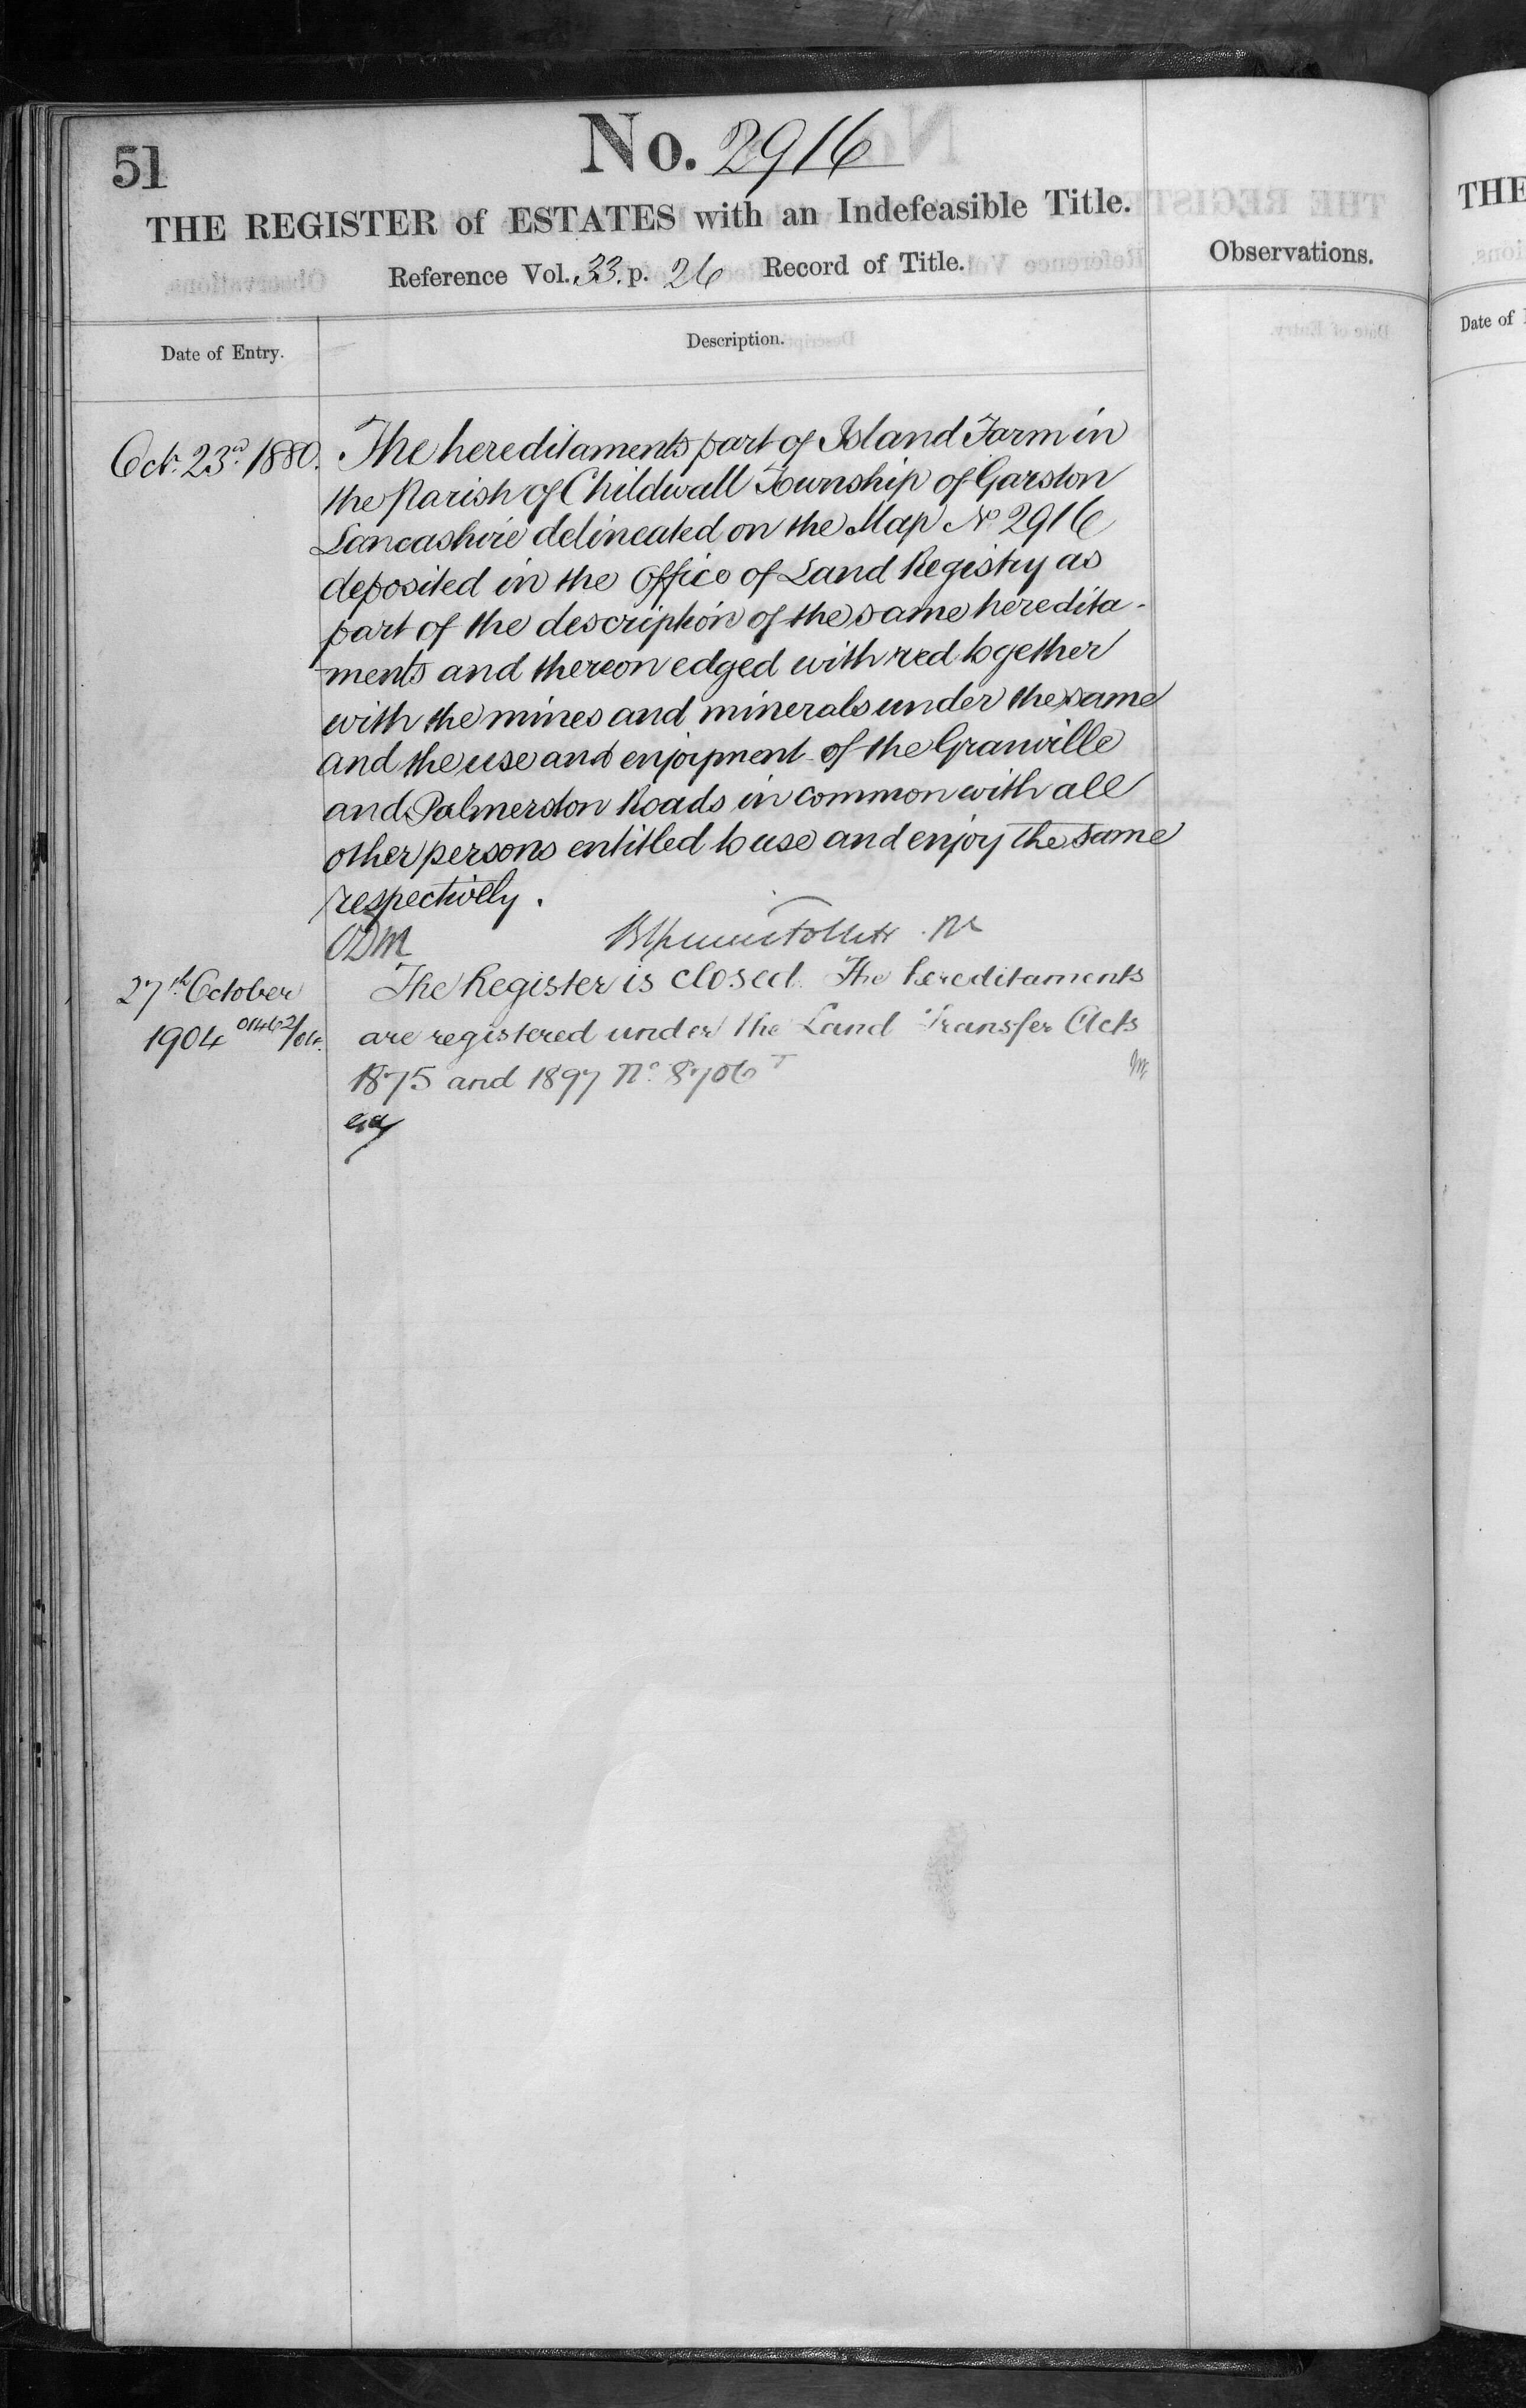 51
No. 2916
THE REGISTER of ESTATES with an Indefeasible Title.
Reference Vol. 33. p. 26 Record of Title.
Observations.
Date of Entry.
Description.
Oct. 23rd. 1880.
The hereditaments part of Island Farm in
the Parish of Childwall Township of Garston
Lancashire delineated on the Map No 2916
deposited in the Office of Land Registry as
part of the description of the same heredita-
ments and thereon edged with red together
with the mines and minerals under the same
and the use and enjoyment of the Granville
and Palmerston Roads in common with all
other persons entitled to use and enjoy the same
respectively.
ODM
27th October
1904 01462/04.
The Register is closed. The hereditaments
are registered under the Land Transfer Acts
1875 and 1897 No. 8706 T
THE
Date of